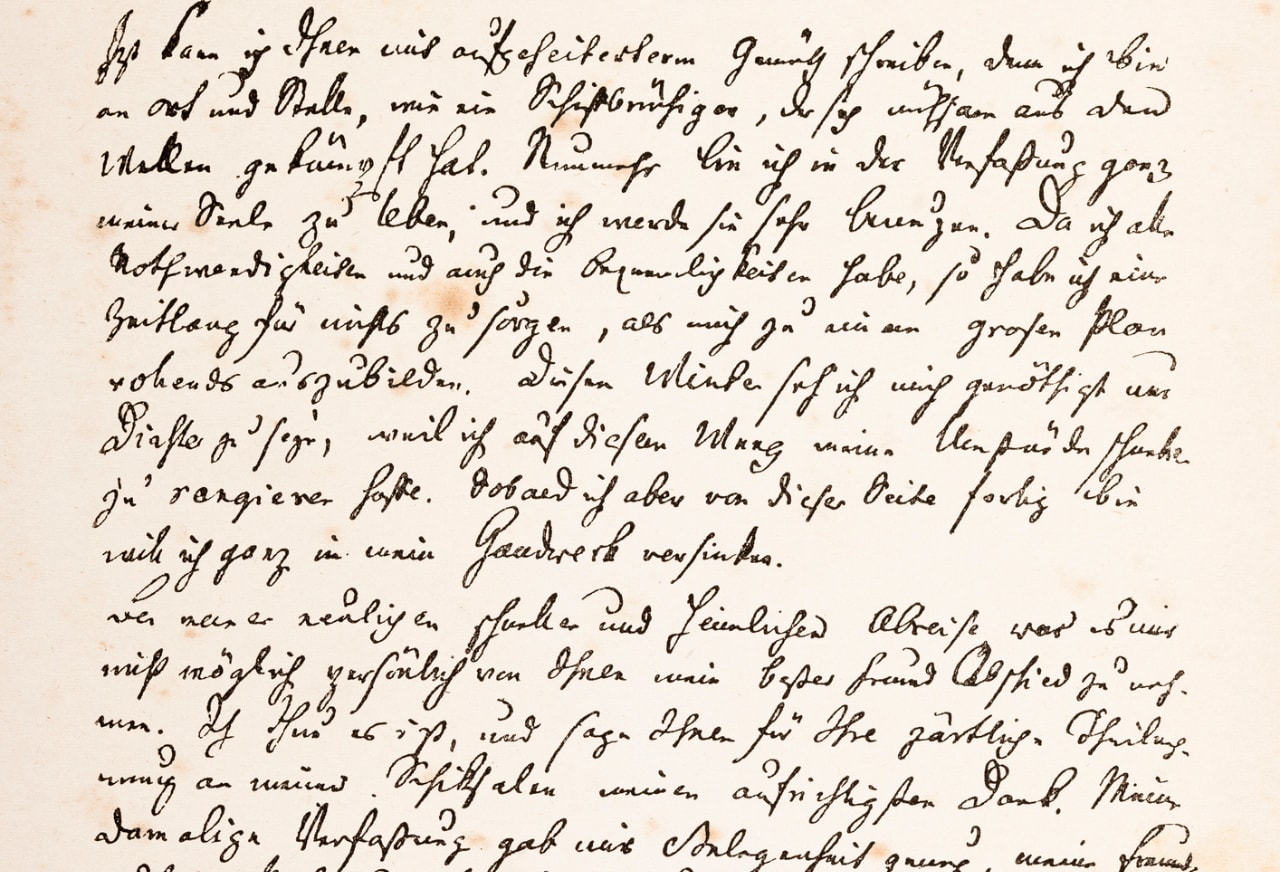 Izt kann ich Ihnen mit aufgeheiterterm Gemüth schreiben, denn ich bin
an Ort und Stelle, wie ein Schiffbrüchiger, der sich mühsam aus den
Wellen gekämpft hat. Nunmehr bin ich in der Verfaßung ganz
meiner Seele zu leben, und ich werde sie sehr benuzen. Da ich alle
Nothwendigkeiten und auch die Bequemlichkeiten habe, so habe ich eine
Zeitlang für nichts zu sorgen, als mich zu einem grosen Plan
vollends auszubilden. Diesen Winter seh ich mich genöthigt nur
Dichter zu seyn, weil ich auf diesem Weeg meine Umstände schneller
zu rangieren hoffe. Sobald ich aber von dieser Seite fertig bin
will ich ganz in mein Handwerk versinken.
Bei meiner neulichen schnellen und heimlichen Abreise war es mir
nicht möglich persönlich von Ihnen mein bester Freund Abschied zu neh-
men. Ich thue es izt, und sage Ihnen für Ihre zärtliche Theilneh-
mung an meinen Schiksalen meinen aufrichtigsten Dank. Meine
damalige Verfaßung gab mir Gelegenheit genug, meine Freunde